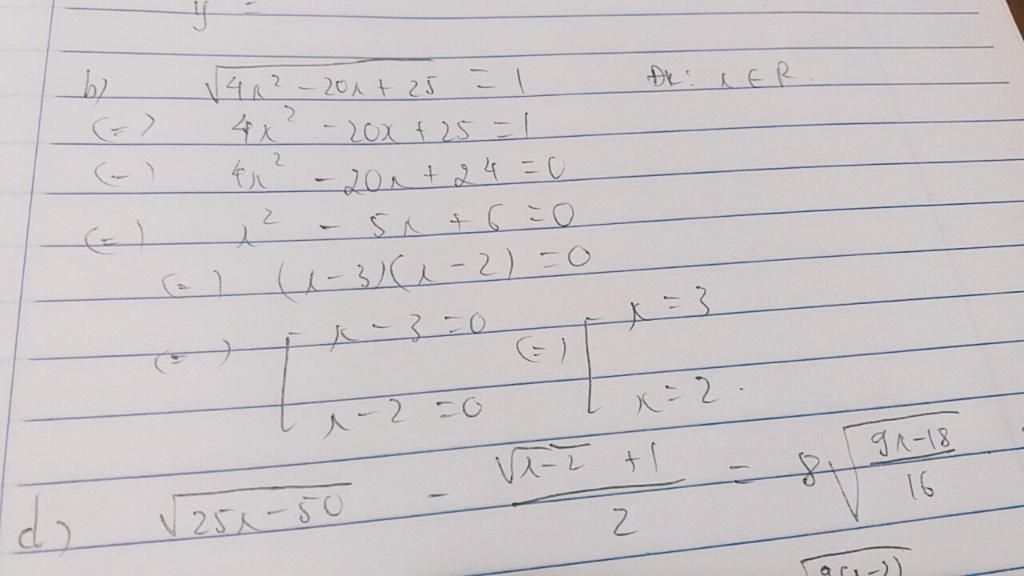 y =
b) √(4x² - 20x + 25) = 1 Đk: x ∈ R.
(=) 4x² - 20x + 25 = 1
(=) 4x² - 20x + 24 = 0
(=) x² - 5x + 6 = 0
(=) (x - 3)(x - 2) = 0
(=) [ x - 3 = 0 (=) [ x = 3
x - 2 = 0 x = 2.
d) √(25x - 50) - (√(x - 2) + 1)/2 = 8√((9x - 18)/16)